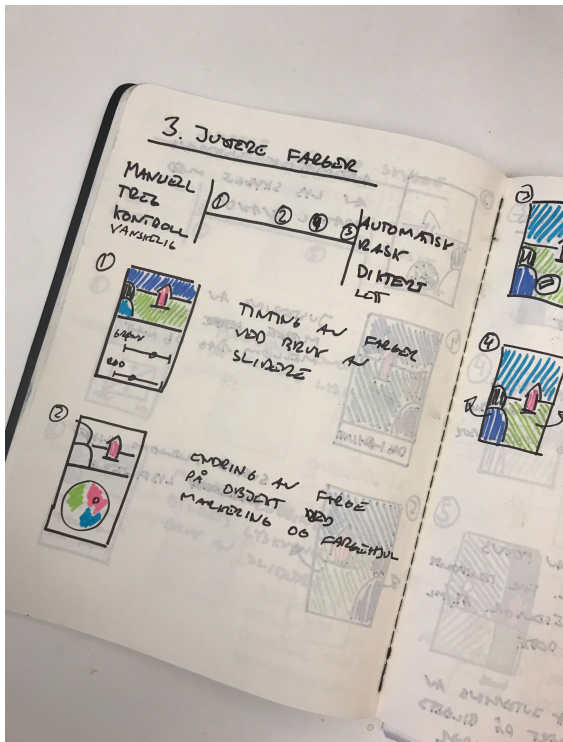 3. JUSTERE FARGER
MANUELL
TREG
KONTROLL
VANSKELIG
① ② ④ ③
AUTOMATISK
RASK
DIKTERT
LETT
①
GRØNN
RØD
TINTING AV FARGER
VED BRUK AV
SLIDERE
②
ENDRING AV FARGE
PÅ OBJEKT VED
MARKERING OG FARGEHJUL
③
④